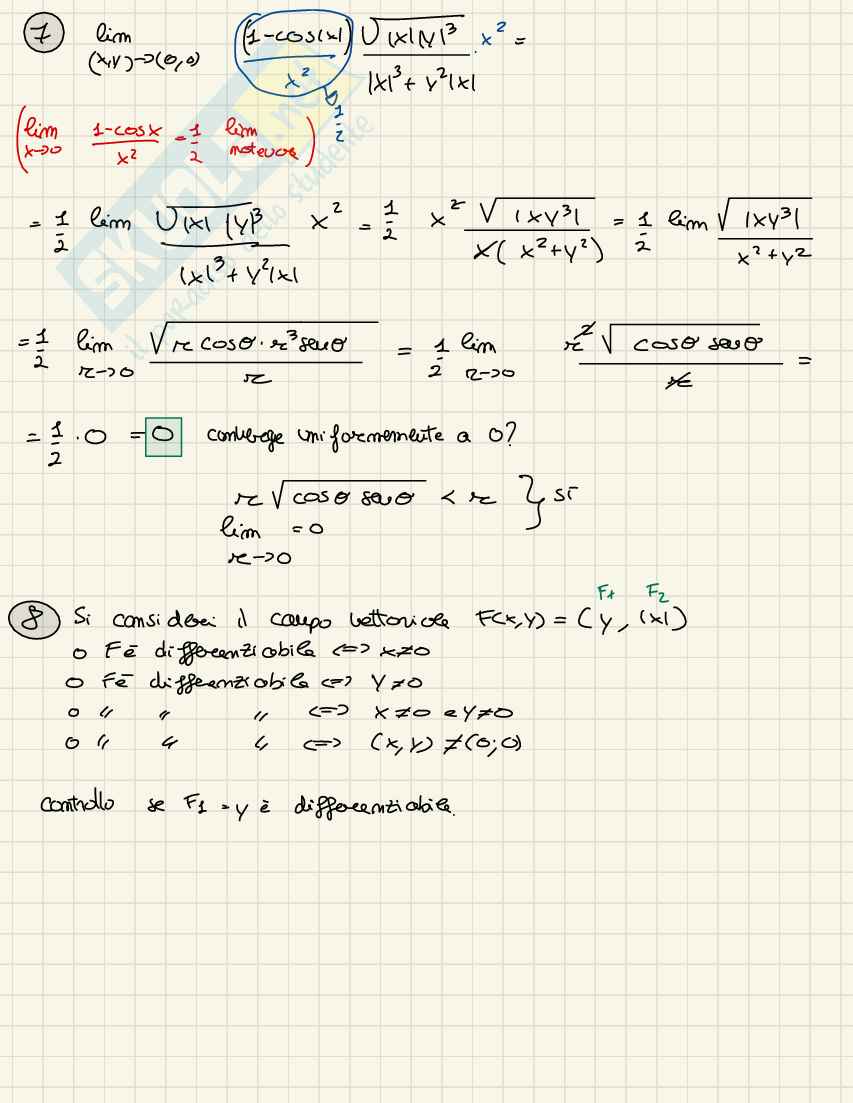 7 lim (x,y)→(0,0) (1-cos|x|)/x² · √|x||y|³/(|x|³+y²|x|) · x² =
→ 1/2
(lim x→0 (1-cosx)/x² = 1/2 lim notevole)
= 1/2 lim √|x| |y|³/(|x|³+y²|x|) x² = 1/2 x² √|xy³|/(x(x²+y²)) = 1/2 lim √|xy³|/(x²+y²)
= 1/2 lim r→0 √(r cosθ · r³ senθ)/r = 1/2 lim r→0 r² √(cosθ senθ)/r =
= 1/2 · 0 = 0 converge uniformemente a 0?
r √(cosθ senθ) < r } sì
lim r→0 = 0
F1 F2
8 Si consideri il campo vettoriale F(x,y) = (y, |x|)
o F è differenziabile <=> x≠0
o F è differenziabile <=> y≠0
o " " " <=> x≠0 e y≠0
o " " " <=> (x,y) ≠ (0;0)
controllo se F1 = y è differenziabile.
SKUOLA.net
il paradiso dello studente